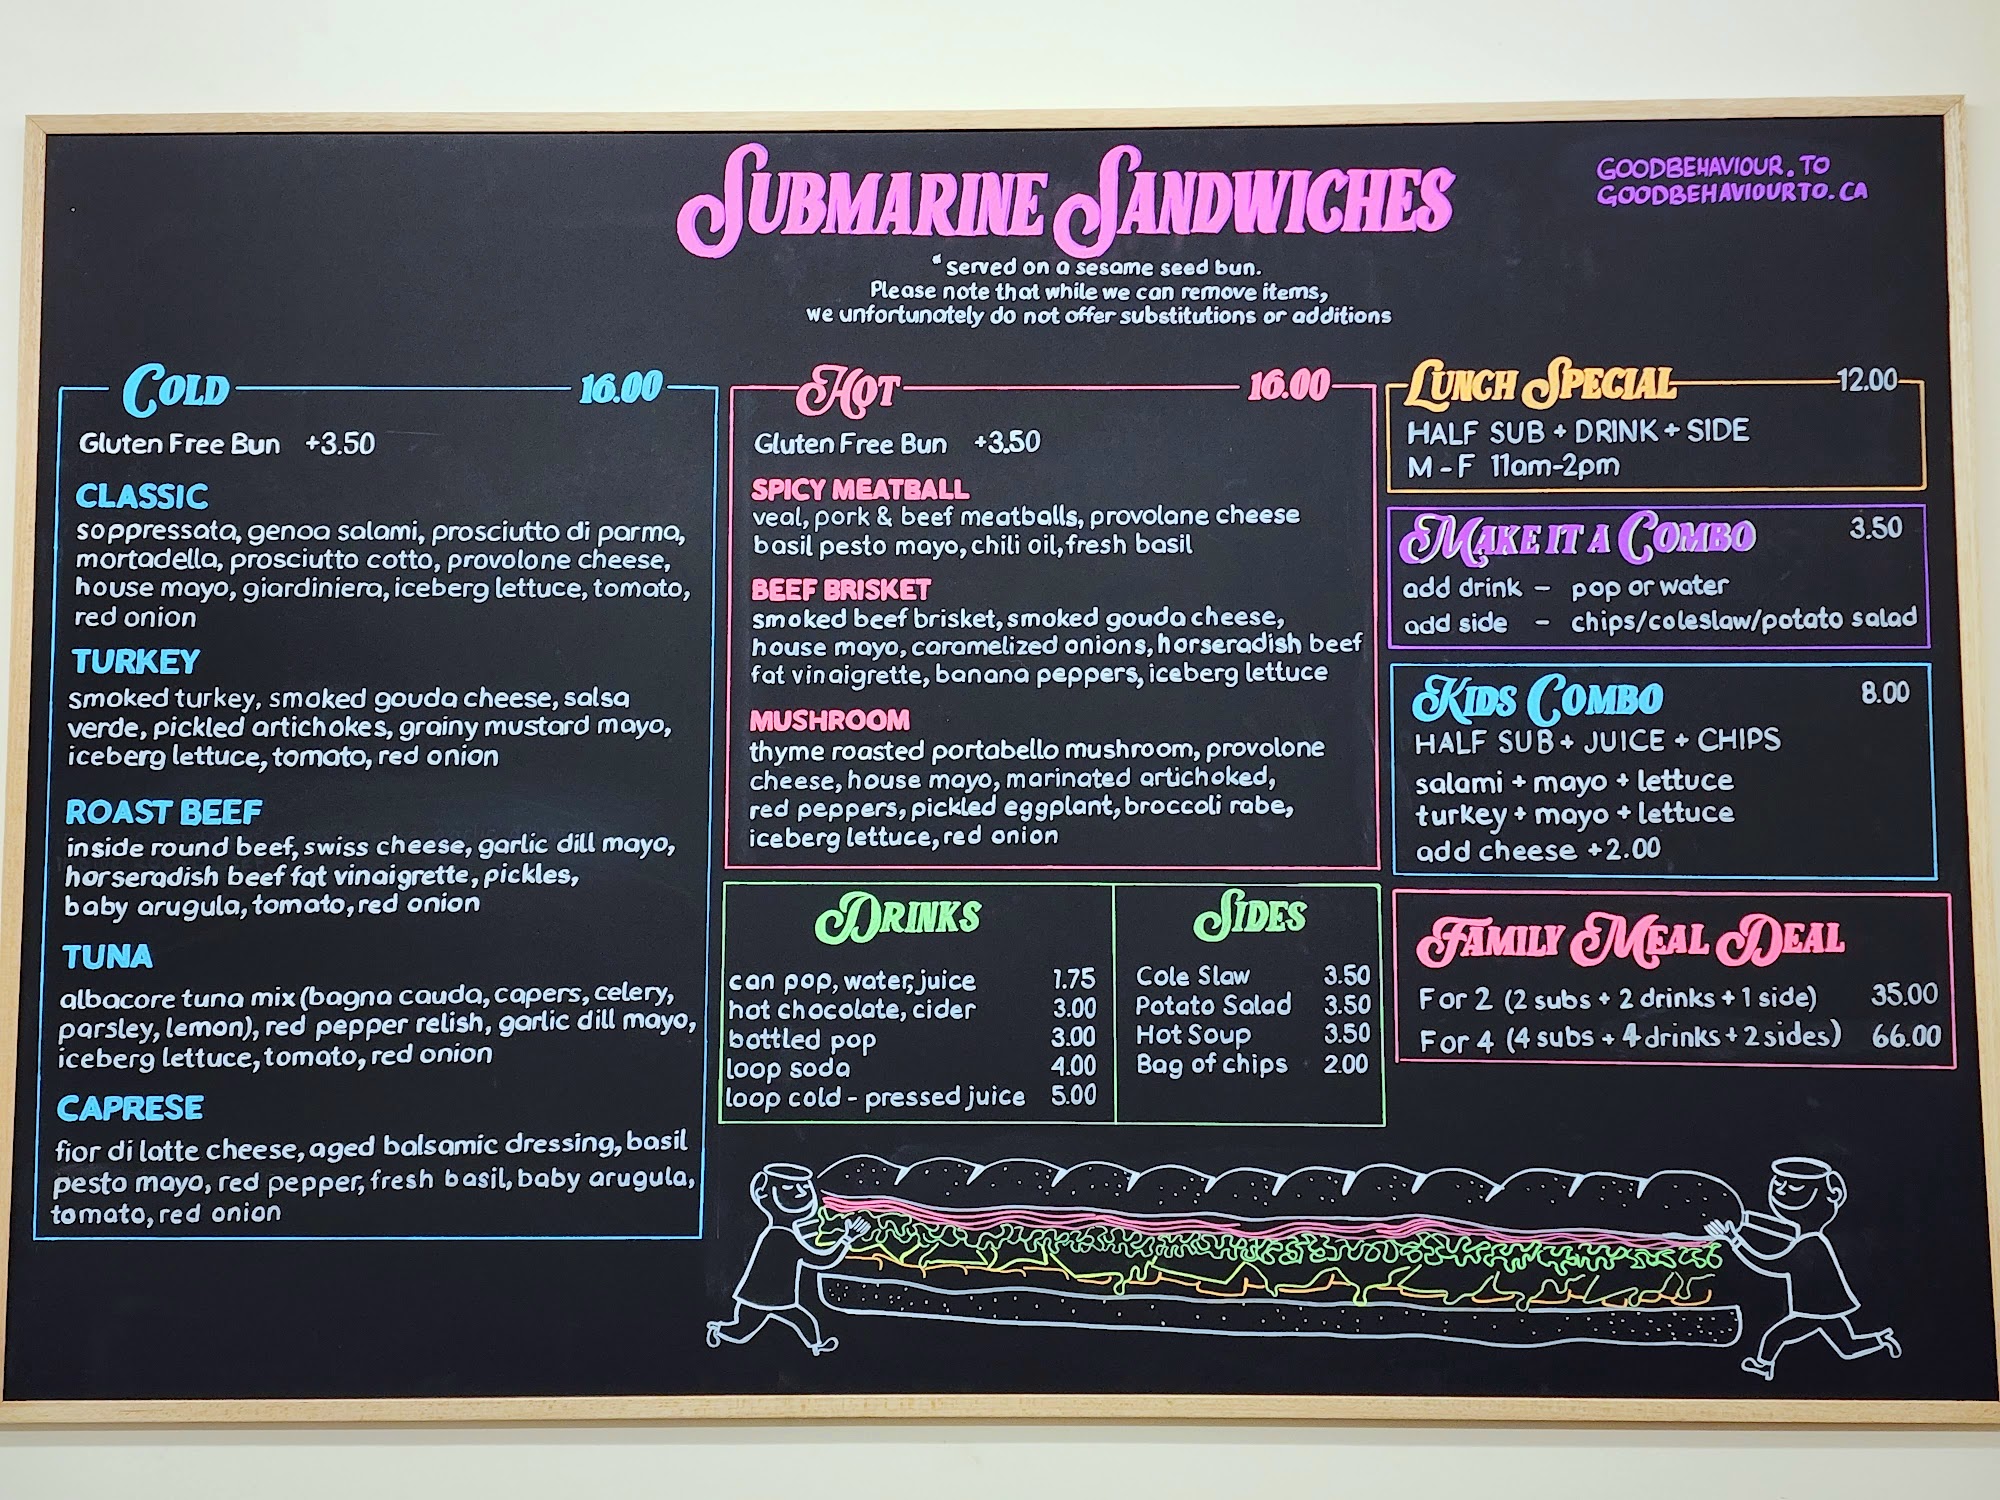 SUBMARINE SANDWICHES
GOODBEHAVIOUR.TO
GOODBEHAVIOURTO.CA
*served on a sesame seed bun.
Please note that while we can remove items,
we unfortunately do not offer substitutions or additions
COLD 16.00
Gluten Free Bun +3.50
CLASSIC
soppressata, genoa salami, prosciutto di parma,
mortadella, prosciutto cotto, provolone cheese,
house mayo, giardiniera, iceberg lettuce, tomato,
red onion
TURKEY
smoked turkey, smoked gouda cheese, salsa
verde, pickled artichokes, grainy mustard mayo,
iceberg lettuce, tomato, red onion
ROAST BEEF
inside round beef, swiss cheese, garlic dill mayo,
horseradish beef fat vinaigrette, pickles,
baby arugula, tomato, red onion
TUNA
albacore tuna mix (bagna cauda, capers, celery,
parsley, lemon), red pepper relish, garlic dill mayo,
iceberg lettuce, tomato, red onion
CAPRESE
fior di latte cheese, aged balsamic dressing, basil
pesto mayo, red pepper, fresh basil, baby arugula,
tomato, red onion
HOT 16.00
Gluten Free Bun +3.50
SPICY MEATBALL
veal, pork & beef meatballs, provolane cheese
basil pesto mayo, chili oil, fresh basil
BEEF BRISKET
smoked beef brisket, smoked gouda cheese,
house mayo, caramelized onions, horseradish beef
fat vinaigrette, banana peppers, iceberg lettuce
MUSHROOM
thyme roasted portabello mushroom, provolone
cheese, house mayo, marinated artichoked,
red peppers, pickled eggplant, broccoli rabe,
iceberg lettuce, red onion
DRINKS
can pop, water, juice 1.75
hot chocolate, cider 3.00
bottled pop 3.00
loop soda 4.00
loop cold - pressed juice 5.00
SIDES
Cole Slaw 3.50
Potato Salad 3.50
Hot Soup 3.50
Bag of chips 2.00
LUNCH SPECIAL 12.00
HALF SUB + DRINK + SIDE
M - F 11am-2pm
MAKE IT A COMBO 3.50
add drink - pop or water
add side - chips/coleslaw/potato salad
KIDS COMBO 8.00
HALF SUB + JUICE + CHIPS
salami + mayo + lettuce
turkey + mayo + lettuce
add cheese +2.00
FAMILY MEAL DEAL
For 2 (2 subs + 2 drinks + 1 side) 35.00
For 4 (4 subs + 4 drinks + 2 sides) 66.00